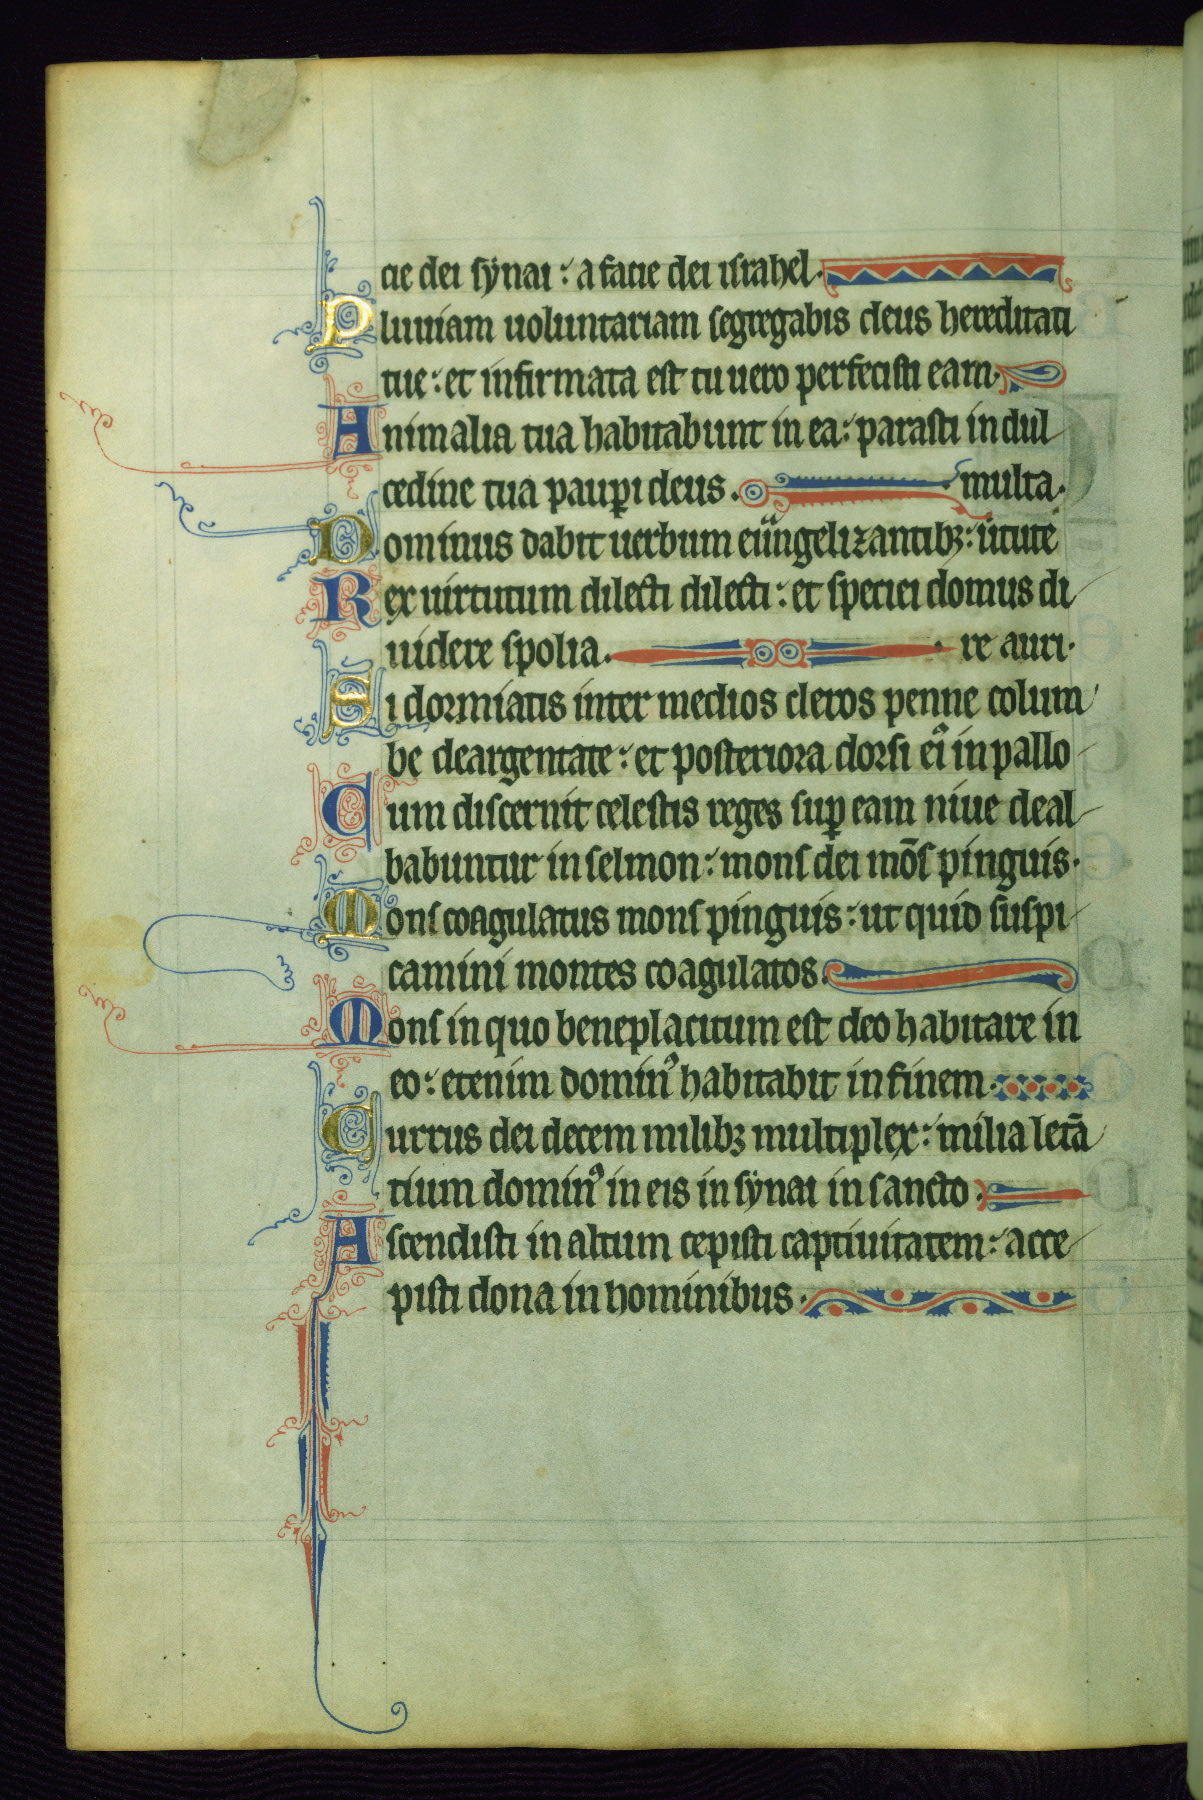 cie dei synai : a facie dei israhel.
Pluuiam uoluntariam segregabis deus hereditati
tue : et infirmata est tu uero perfecisti eam.
Animalia tua habitabunt in ea : parasti in dul
cedine tua paup̱i deus. multa.
Dominus dabit uerbum euu̅ngelizantibꝫ : u̇tute
Rex uirtutum dilecti dilecti : et speciei domus di
uidere spolia. re auri.
Si dormiatis inter medios cleros penne colum
be deargentate : et posteriora dorsi ei᷒ in pallo
Cum discernit celestis reges sup̱ eam niue deal
babuntur in selmon : mons dei mo̅s pinguis.
Mons coagulatus mons pinguis : ut quid suspi
camini montes coagulatos.
Mons in quo beneplacitum est deo habitare in
eo : etenim domin᷒ habitabit in finem.
Currus dei decem milibꝫ multiplex : milia leta̅
tium domin᷒ in eis in synai in sancto.
Ascendisti in altum cepisti captiuitatem : acce
pisti dona in hominibus.